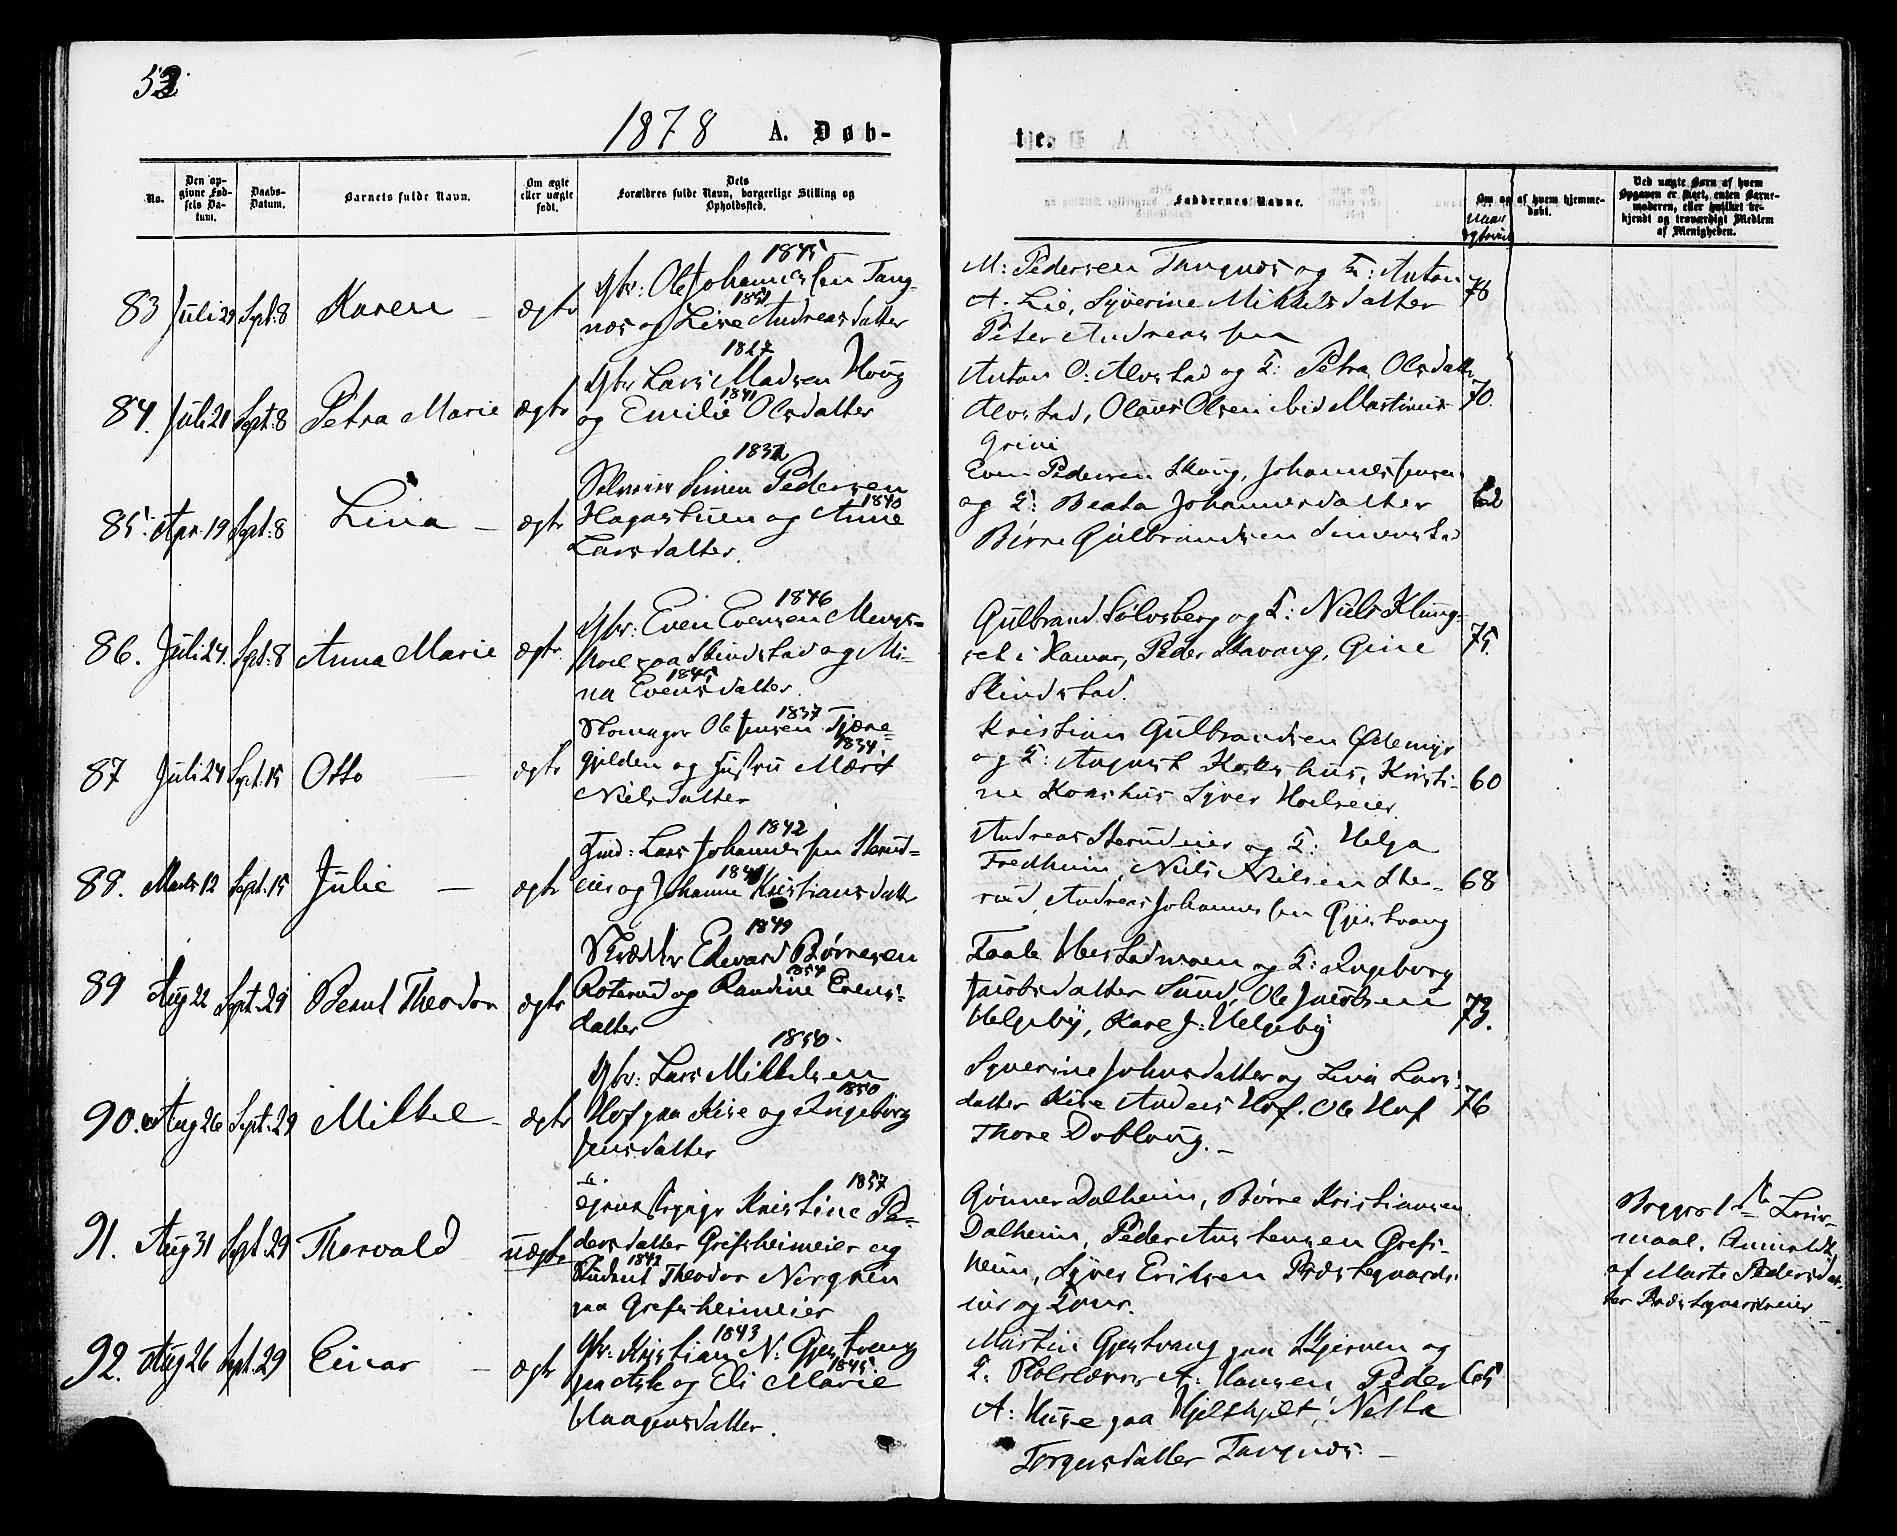 53
1878 A. Døb-
te.
No.
Den op-
givne Fød-
sels Da-
tum.
Daabs-
Datum.
Barnets fulde Navn.
Om ægte
eller uægte
født.
Dets
Forældres fulde Navn, borgerlige Stilling og
Opholdssted.
Faddernes Navne.
Om og af hvem hjemme-
døbt.
Ved uægte Børn af hvem
Opgaven er skeet, enten Barne-
moderen, eller hvilket be-
kjendt og troværdigt Medlem
af Menigheden.
83 Juli 29 Sept: 8 Karen ægte
1845
Gbr: Ole Johannessen Tang-
1851
næs og Lise Andreasdatter
M: Pedersen Tangnæs og F: Anton
A. Lie, Syverine Mikkelsdatter
Peter Andreassen
78
84. Juli 21 Sept: 8 Petra Marie ægte
1827
Gbr Lars Madsen Houg
1841
og Emilie Olsdatter
Anton O: Alvstad og F: Petra Olsdatter
Alvstad, Olaus Olsen ibid Martinus
Grini
70.
85. Apr. 19 Sept: 8 Lina ægte
1832
Selveier Simen Pedersen
1840
Hagastuen og Anne
Larsdatter.
Even Pedersen Skoug, Johannes Jensen
og F: Beata Johannesdatter
Børre Gulbrandsen Simenstad
62
86. Juli 24. Sept: 8 Anna Marie ægte
1846
Gbr: Even Evensen Mengs-
hoel paa Skindstad og Mi-
1845
na Evensdatter.
Gulbrand Sølvsberg og F: Niels Klung-
set i Hamar, Peder Stavang, Gine
Skindstad.
75.
87 Juli 24 Sept. 15 Otto ægte
1837
Skomager Ole Jensen Tjære-
1834
gjilden og Hustru Marit
Nielsdatter
Kristian Gulbrandsen Ødemyr
og F: August Korshus, Kristi-
ne Korshus Syver Hoelseier
60
88. Marts 12 Sept. 15 Julie ægte
1842
Hmd: Lars Johannessen Sterud-
eier og Johanne Kristiansdatter
Andreas Sterudeier og F: Helga
Fredheim, Niels Nielsen Ste-
rud, Andreas Johannessen Gjestvang
68
89 Aug 22 Sept. 29 Bernt Theodor ægte
1849
Skrædder Edevard Børresen
1854
Roterud og Randine Evens-
datter
Taale Herstadmoen og F: Ingeborg
Jacobsdatter Sund, Ole Jacobsen
Helgeby, Kare J: Helgeby
73.
90. Aug 26 Sept. 29 Mikkel ægte
1850.
Gbr: Lars Mikkelsen
1850
Hof paa Kise og Ingeborg
Jensdatter
Syverine Johnsdatter og Lina Lars-
datter Kise Anders Hof. Ole Hof
Thore Dobloug.
76
91. Aug 31 Sept. 29 Thorvald uægte
1857
Kristine Pe-
dersdatter Grefsheimeier og
1849
Student Theodor Norgren
paa Grefsheimeier
Gunner Dalheim, Børre Kristiansen
Dalheim, Peder Austensen Grefs-
heim, Syver Eriksen Præstegaards-
eier og Fonr.
Begges 1ste Leier-
maal. Anmeldt
af Marte Pedersdat-
ter Præstegaardseier
92. Aug 26 Sept. 29 Einar ægte
1843
Gbr. Kristian N: Gjestvang
1845.
paa Ask og Eli Marie
Haagensdatter.
Martin Gjestvang paa Skjerven og
F. Skolelærer A: Hansen, Peder
A: Huse paa Hjelthjelt, Netta
Torgersdatter Tangnæs.
65